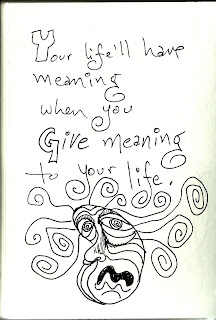 Your life'll have
meaning
when you
Give meaning
to your life.